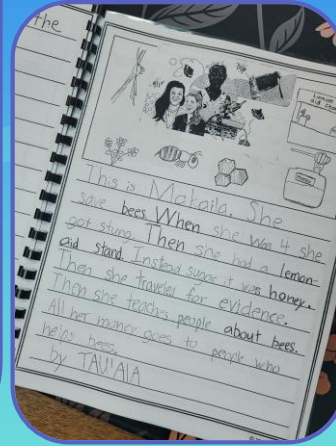 the
Lemon
aid stand
Honey
This is Makaila. She
save bees. When she was 4 she
got stung. Then she had a lemon-
aid stand. Instead sugar it was honey.
Then she traveled for evidence.
Then she teaches people about bees.
All her money goes to people who
helps bees.
by TAU'ALA